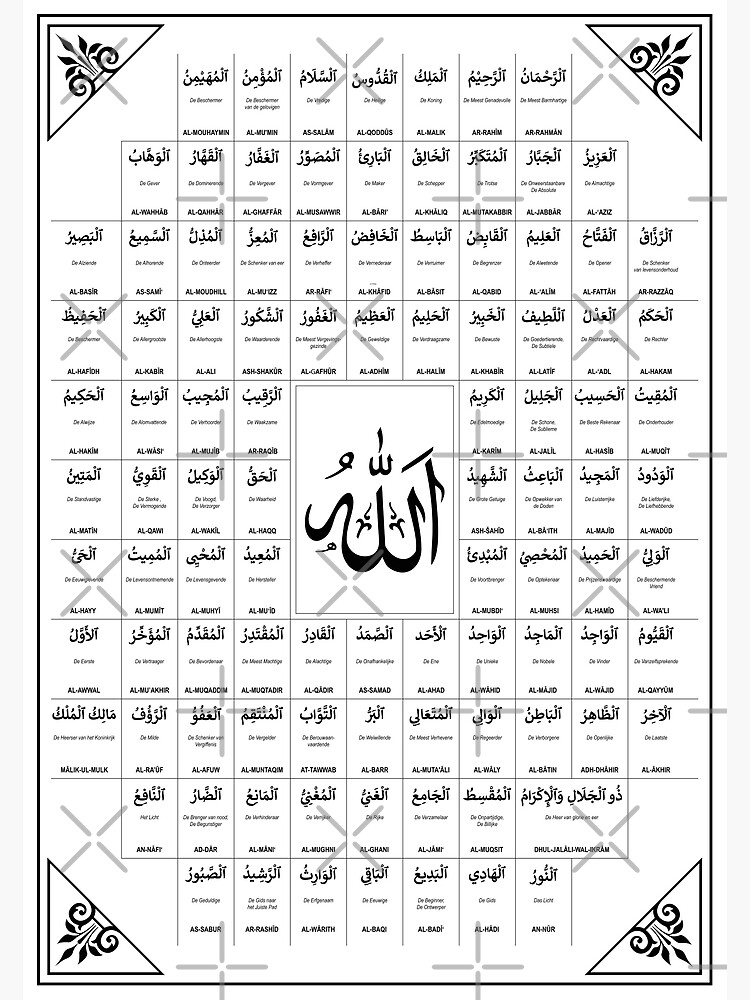 اَلرَّحْمَانُ
De Meest Barmhartige
AR-RAHMÂN
اَلرَّحِيْمُ
De Meest Genadevolle
AR-RAHÎM
اَلْمَلِكُ
De Koning
AL-MALIK
اَلْقُدُّوسُ
De Heilige
AL-QODDÛS
اَلسَّلَامُ
De Vredige
AS-SALÂM
اَلْمُؤْمِنُ
De Beschermer
van de gelovigen
AL-MU'MIN
اَلْمُهَيْمِنُ
De Beschermer
AL-MOUHAYMIN
اَلْعَزِيزُ
De Almachtige
AL-'AZIZ
اَلْجَبَّارُ
De Onweerstaanbare
De Absolute
AL-JABBÂR
اَلْمُتَكَبِّرُ
De Trotse
AL-MUTAKABBIR
اَلْخَالِقُ
De Schepper
AL-KHÂLIQ
اَلْبَارِئُ
De Maker
AL-BÂRI'
اَلْمُصَوِّرُ
De Vormgever
AL-MUSAWWIR
اَلْغَفَّارُ
De Vergever
AL-GHAFFÂR
اَلْقَهَّارُ
De Dominerende
AL-QAHHÂR
اَلْوَهَّابُ
De Gever
AL-WAHHÂB
اَلرَّزَّاقُ
De Schenker
van levensonderhoud
AR-RAZZÂQ
اَلْفَتَّاحُ
De Opener
AL-FATTÂH
اَلْعَلِيمُ
De Alwetende
AL-'ALÎM
اَلْقَابِضُ
De Begrenzer
AL-QABID
اَلْبَاسِطُ
De Verruimer
AL-BÂSIT
اَلْخَافِضُ
De Vernederaar
AL-KHÂFID
اَلرَّافِعُ
De Verheffer
AR-RÂFI'
اَلْمُعِزُّ
De Schenker van eer
AL-MU'IZZ
اَلْمُذِلُّ
De Onteerder
AL-MOUDHILL
اَلسَّمِيعُ
De Alhorende
AS-SAMÎ'
اَلْبَصِيرُ
De Alziende
AL-BASÎR
اَلْحَكَمُ
De Rechter
AL-HAKAM
اَلْعَدْلُ
De Rechtvaardige
AL-'ADL
اَللَّطِيفُ
De Goedertierende,
De Subtiele
AL-LATÎF
اَلْخَبِيرُ
De Bewuste
AL-KHABÎR
اَلْحَلِيمُ
De Verdraagzame
AL-HALÎM
اَلْعَظِيمُ
De Geweldige
AL-ADHÎM
اَلْغَفُورُ
De Meest Vergevings-
gezinde
AL-GAFHÛR
اَلشَّكُورُ
De Waarderende
ASH-SHAKÛR
اَلْعَلِيُّ
De Allerhoogste
AL-ALI
اَلْكَبِيرُ
De Allergrootste
AL-KABÎR
اَلْحَفِيظُ
De Beschermer
AL-HAFÎDH
اَلْمُقِيتُ
De Onderhouder
AL-MUQÎT
اَلْحَسِيبُ
De Beste Rekenaar
AL-HASÎB
اَلْجَلِيلُ
De Schone,
De Sublieme
AL-JALÎL
اَلْكَرِيمُ
De Edelmoedige
AL-KARÎM
اَلرَّقِيبُ
De Waakzame
AR-RAQÎB
اَلْمُجِيبُ
De Verhoorder
AL-MUJÎB
اَلْوَاسِعُ
De Alomvattende
AL-WÂSI'
اَلْحَكِيمُ
De Alwijze
AL-HAKÎM
اَللّٰهُ
اَلْوَدُودُ
De Liefderijke,
De Liefhebbende
AL-WADÛD
اَلْمَجِيدُ
De Luisterrijke
AL-MAJÎD
اَلْبَاعِثُ
De Opwekker van
de Doden
AL-BÂ'ITH
اَلشَّهِيدُ
De Grote Getuige
ASH-ŠAHÎD
اَلْحَقُّ
De Waarheid
AL-HAQQ
اَلْوَكِيلُ
De Voogd,
De Verzorger
AL-WAKÎL
اَلْقَوِيُّ
De Sterke ,
De Vermogende
AL-QAWI
اَلْمَتِينُ
De Standvastige
AL-MATÎN
اَلْوَلِيُّ
De Beschermende
Vriend
AL-WA'LI
اَلْحَمِيدُ
De Prijzenwaardige
AL-HAMÎD
اَلْمُحْصِيُ
De Optekenaar
AL-MUHSI
اَلْمُبْدِئُ
De Voortbrenger
AL-MUBDI'
اَلْمُعِيدُ
De Hersteller
AL-MU'ÎD
اَلْمُحْيِي
De Levensgevende
AL-MUHYÎ
اَلْمُمِيتُ
De Levensontnemende
AL-MUMÎT
اَلْحَيُّ
De Eeuwiglevende
AL-HAYY
اَلْقَيُّومُ
De Vanzelfsprekende
AL-QAYYÛM
اَلْوَاجِدُ
De Vinder
AL-WÂJID
اَلْمَاجِدُ
De Nobele
AL-MÂJID
اَلْوَاحِدُ
De Unieke
AL-WÂHID
اَلْأَحَد
De Ene
AL-AHAD
اَلصَّمَدُ
De Onafhankelijke
AS-SAMAD
اَلْقَادِرُ
De Alachtige
AL-QÂDIR
اَلْمُقْتَدِرُ
De Meest Machtige
AL-MUQTADIR
اَلْمُقَدِّمُ
De Bevordenaar
AL-MUQADDIM
اَلْمُؤَخِّرُ
De Vertraager
AL-MU'AKHIR
اَلأَوَّلُ
De Eerste
AL-AWWAL
اَلْآخِرُ
De Laatste
AL-ÂKHIR
اَلظَّاهِرُ
De Openlijke
ADH-DHÂHIR
اَلْبَاطِنُ
De Verborgene
AL-BÂTIN
اَلْوَالِي
De Regeerder
AL-WÂLY
اَلْمُتَعَالِي
De Meest Verhevene
AL-MUTA'ÂLI
اَلْبَرُّ
De Welwillende
AL-BARR
اَلتَّوَّابُ
De Berouwaan-
vaardende
AT-TAWWAB
اَلْمُنْتَقِمُ
De Vergelder
AL-MUNTAQIM
اَلْعَفُوُّ
De Schenker van
Vergiffenis
AL-AFUW
اَلرَّؤُفُ
De Milde
AL-RA'ÛF
مَالِكُ اَلْمُلْكُ
De Heerser van het Koninkrijk
MÂLIK-UL-MULK
ذُو اَلْجَلَالِ وَاَلْإِكْرَامُ
De Heer van glorie en eer
DHUL-JALÂLI-WAL-IKRÂM
اَلْمُقْسِطُ
De Onpartijdige,
De Billijke
AL-MUQSIT
اَلْجَامِعُ
De Verzamelaar
AL-JÂMI'
اَلْغَنِيُّ
De Rijke
AL-GHANI
اَلْمُغْنِيُّ
De Verrijker
AL-MUGHNI
اَلْمَانِعُ
De Verhinderaar
AL-MÂNI'
اَلضَّارُ
De Brenger van nood,
De Begunstiger
AD-DÂR
اَلنَّافِعُ
Het Licht
AN-NÂFI'
اَلنُّورُ
Das Licht
AN-NÛR
اَلْهَادِي
De Gids
AL-HÂDI
اَلْبَدِيعُ
De Beginner,
De Ontwerper
AL-BADÎ'
اَلْبَاقِي
De Eeuwige
AL-BAQI
اَلْوَارِثُ
De Erfgenaam
AL-WÂRITH
اَلرَّشِيدُ
De Gids naar
het Juiste Pad
AR-RASHÎD
اَلصَّبُورُ
De Geduldige
AS-SABUR